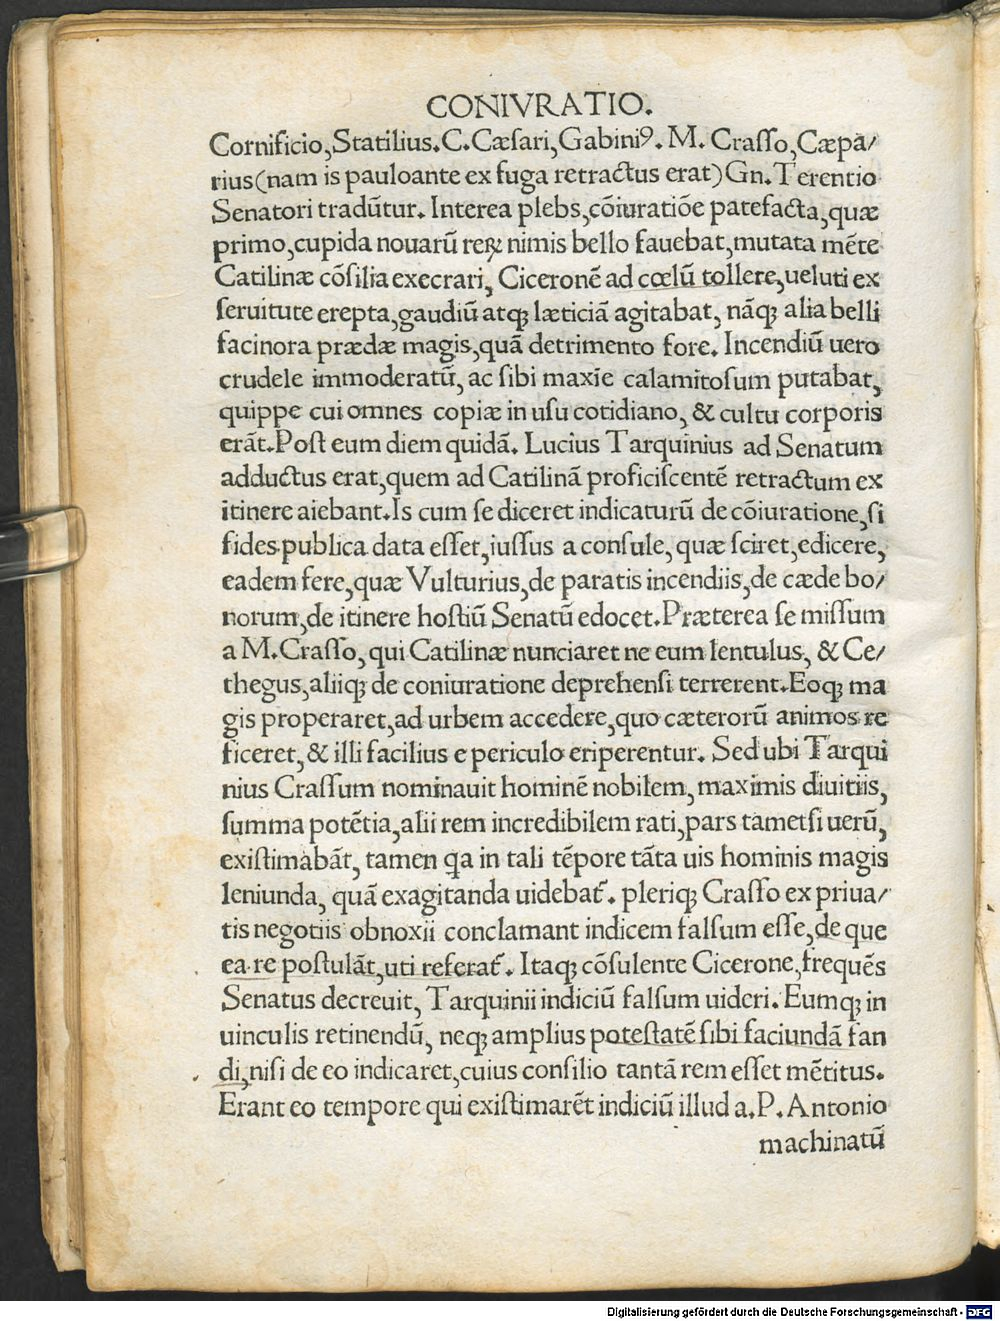 CONIVRATIO.
Cornificio,Statilius.C.Cæſari,Gabiniꝰ. M. Craſſo,Cæpa/
rius(nam is pauloante ex fuga retractus erat)Gn.Terentio
Senatori tradūtur. Interea plebs,cōiuratiōe patefacta,quæ
primo,cupida nouarū reꝝ nimis bello fauebat,mutata mēte
Catilinæ cōſilia execrari, Ciceronē ad cœlū tollere,ueluti ex
ſeruitute erepta,gaudiū atqꝫ læticiā agitabat, nāqꝫ alia belli
facinora prædæ magis,quā detrimento fore. Incendiū uero
crudele immoderatū, ac ſibi maxīe calamitoſum putabat,
quippe cui omnes copiæ in uſu cotidiano, & cultu corporis
erāt.Poſt eum diem quidā. Lucius Tarquinius ad Senatum
adductus erat,quem ad Catilinā proficiſcentē retractum ex
itinere aiebant.Is cum ſe diceret indicaturū de cōiuratione,ſi
fides publica data eſſet,iuſſus a conſule, quæ ſciret,edicere,
eadem fere,quæ Vulturius,de paratis incendiis,de cæde bo/
norum,de itinere hoſtiū Senatū edocet.Præterea ſe miſſum
a M.Craſſo, qui Catilinæ nunciaret ne eum lentulus, & Ce/
thegus,aliiqꝫ de coniuratione deprehenſi terrerent.Eoqꝫ ma
gis properaret,ad urbem accedere,quo cæterorū animos re
ficeret, & illi facilius e periculo eriperentur. Sed ubi Tarqui
nius Craſſum nominauit hominē nobilem, maximis diuitiis,
ſumma potētia,alii rem incredibilem rati,pars tametſi uerū,
exiſtimabāt, tamen qa in tali tēpore tāta uis hominis magis
leniunda, quā exagitanda uidebat᷑. pleriqꝫ Craſſo ex priua/
tis negotiis obnoxii conclamant indicem falſum eſſe,de que
ea re poſtulāt,uti referat᷑. Itaqꝫ cōſulente Cicerone,frequēs
Senatus decreuit, Tarquinii indiciū falſum uideri. Eumqꝫ in
uinculis retinendū, neqꝫ amplius poteſtatē ſibi faciundā fan
di,niſi de eo indicaret,cuius conſilio tantā rem eſſet mētitus.
Erant eo tempore qui exiſtimarēt indiciū illud a.P.Antonio
machinatū
Digitalisierung gefördert durch die Deutsche Forschungsgemeinschaft - DFG